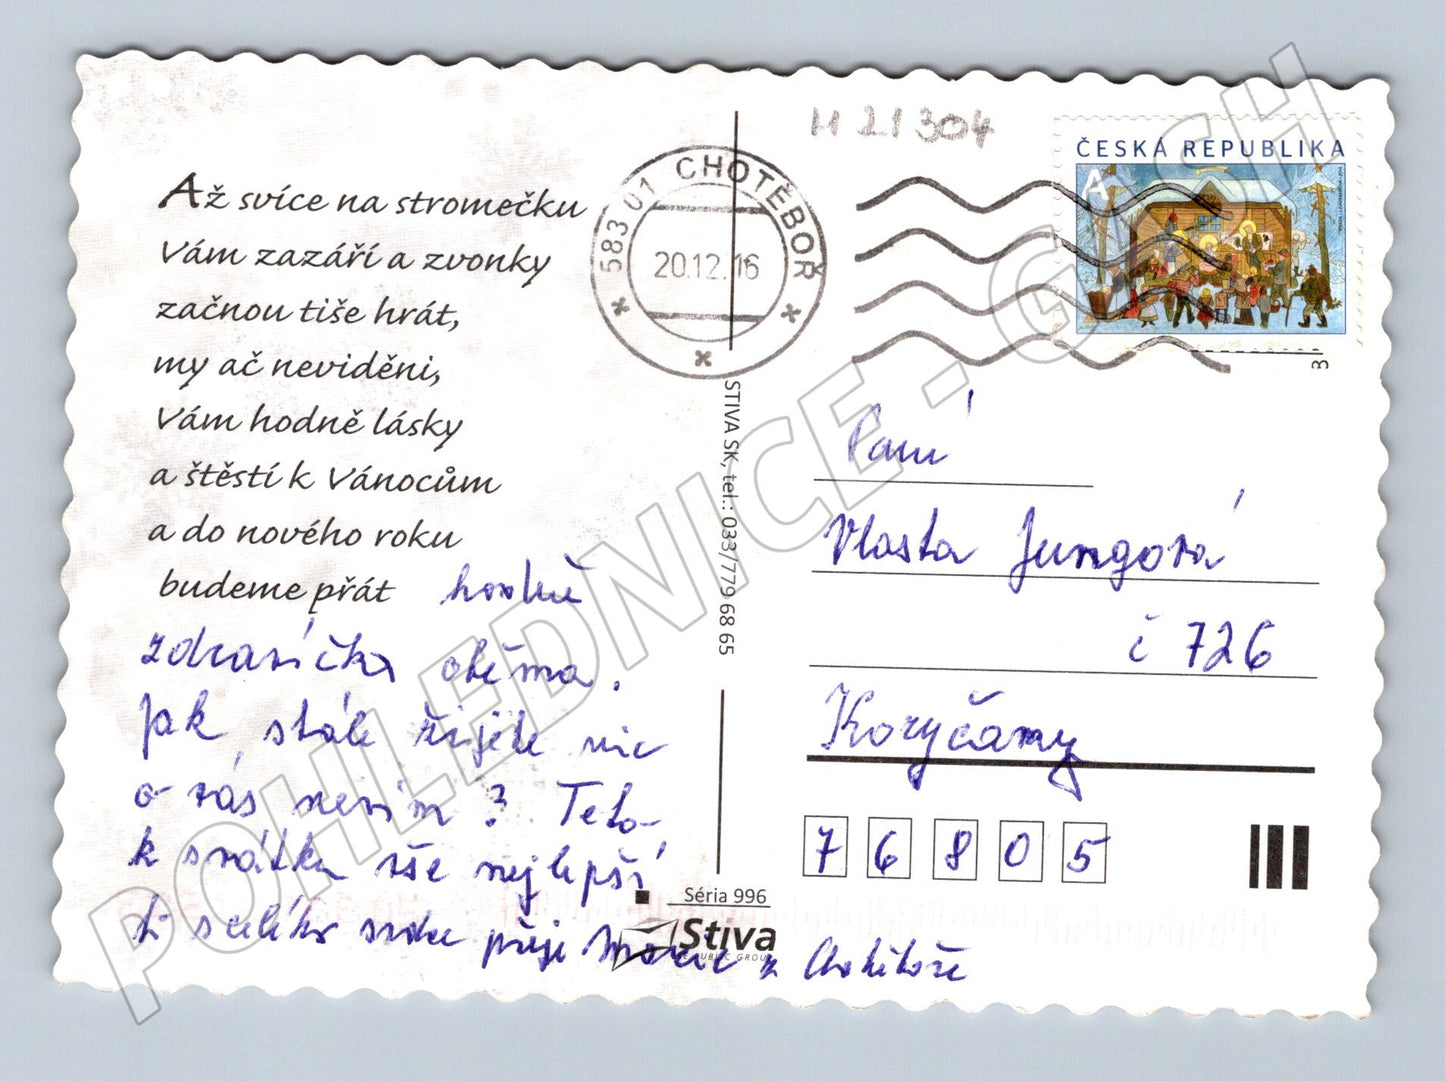 Až svíce na stromečku
Vám zazáří a zvonky
začnou tiše hrát,
my ač neviděni,
Vám hodně lásky
a štěstí k Vánocům
a do nového roku
budeme přát hodně
zdravíčka oběma.
Jak stále žijete nic
o vás nevím? Teto
k svátku vše nejlepší
přeje z Chotěboře
583 01 CHOTĚBOŘ
20.12.16
H 21304
ČESKÁ REPUBLIKA
A
3
STIVA SK, tel.: 033/779 68 65
Séria 996
Stiva
Paní
Vlasta Jungová
č 726
Koryčany
76805
POHLEDNICE - GASH